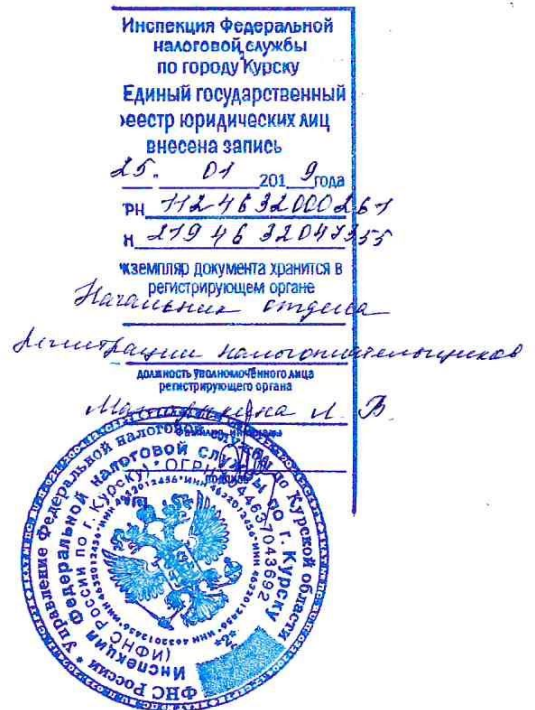 Инспекция Федеральной
налоговой службы
по городу Курску
Единый государственный
реестр юридических лиц
внесена запись
25. 01 2019 года
РН 1124632000261
Н 2194632047355
экземпляр документа хранится в
регистрирующем органе
Начальник отдела
регистрации налогоплательщиков
должность уполномоченного лица
регистрирующего органа
И. В.
подпись
ФНС России * Управление Федеральной налоговой службы по Курской области
Инспекция Федеральной налоговой службы по г. Курску
(ИФНС России по г. Курску) * ОГРН 1044637043692
*2*